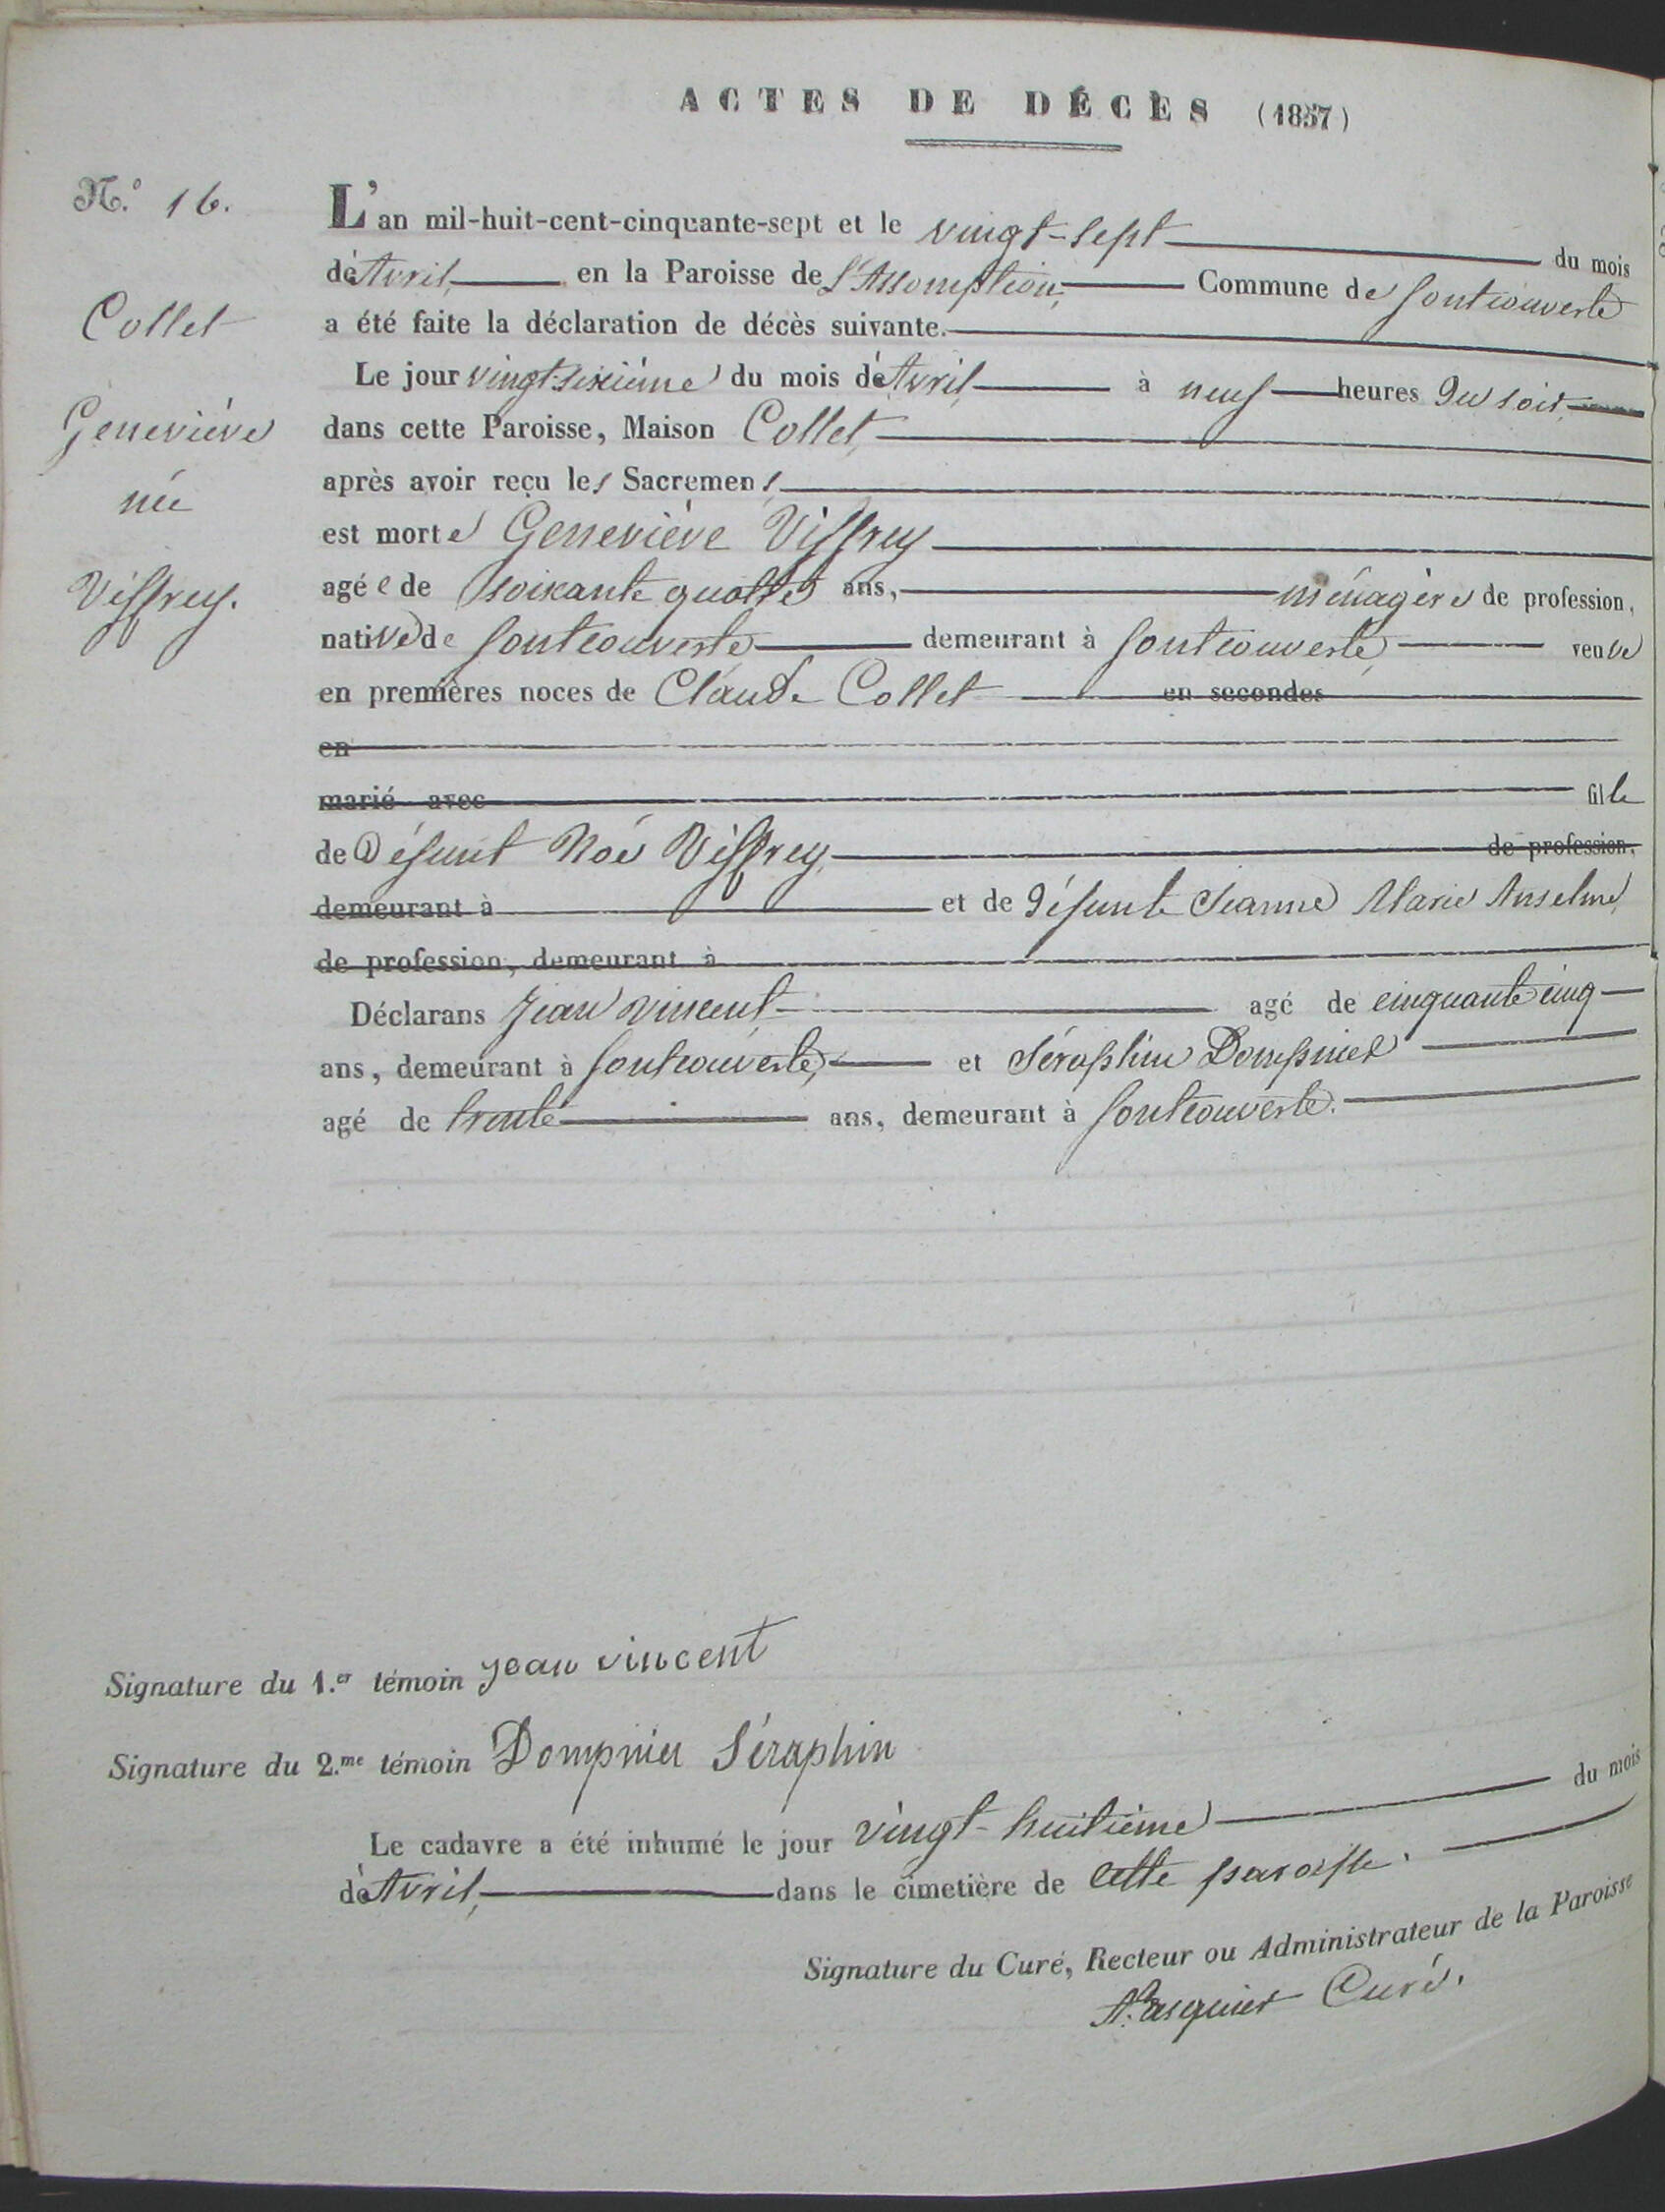 ACTES DE DÉCÈS (1857)
N.º 16.
L'an mil-huit-cent-cinquante-sept et le vingt-sept du mois
d'Avril, en la Paroisse de L'Assomption, Commune de fontcouverte
a été faite la déclaration de décès suivante.
Collet
Geneviève
née
Viffrey.
Le jour vingt-sixième du mois d'Avril, à neuf heures du soir,
dans cette Paroisse, Maison Collet,
après avoir reçu les Sacremens
est morte Geneviève Viffrey
agée de soixante quatre ans, ménagère de profession,
native de fontcouverte demeurant à fontcouverte, veuve
en premières noces de Claude Collet en secondes
en
marié avec fille
de Défunt Noé Viffrey, de profession,
demeurant à et de défunte Jeanne Marie Anselme,
de profession, demeurant à
Déclarans Jean Vincent agé de cinquante cinq
ans, demeurant à fontcouverte, et Séraphin Dompnier
agé de trente ans, demeurant à fontcouverte.
Signature du 1.er témoin jean vincent
Signature du 2.me témoin Dompnier Séraphin
Le cadavre a été inhumé le jour vingt-huitième du mois
d'Avril, dans le cimetière de cette paroisse.
Signature du Curé, Recteur ou Administrateur de la Paroisse
Curé.